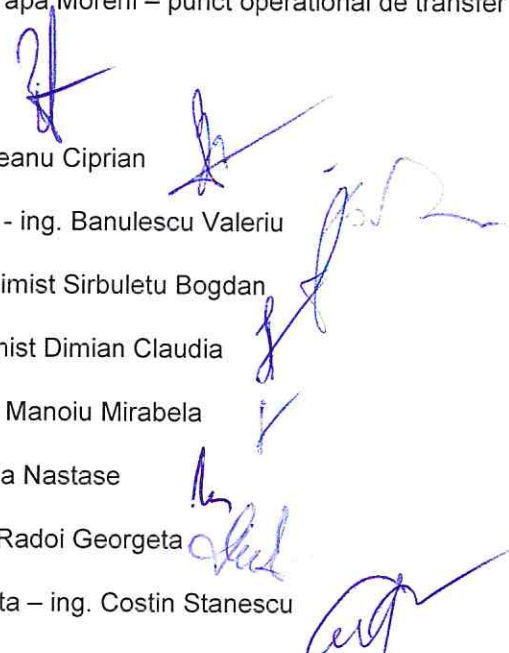 apa Moreni – punct operational de transfer
eanu Ciprian
- ing. Banulescu Valeriu
imist Sirbuletu Bogdan
nist Dimian Claudia
Manoiu Mirabela
a Nastase
Radoi Georgeta
ta – ing. Costin Stanescu